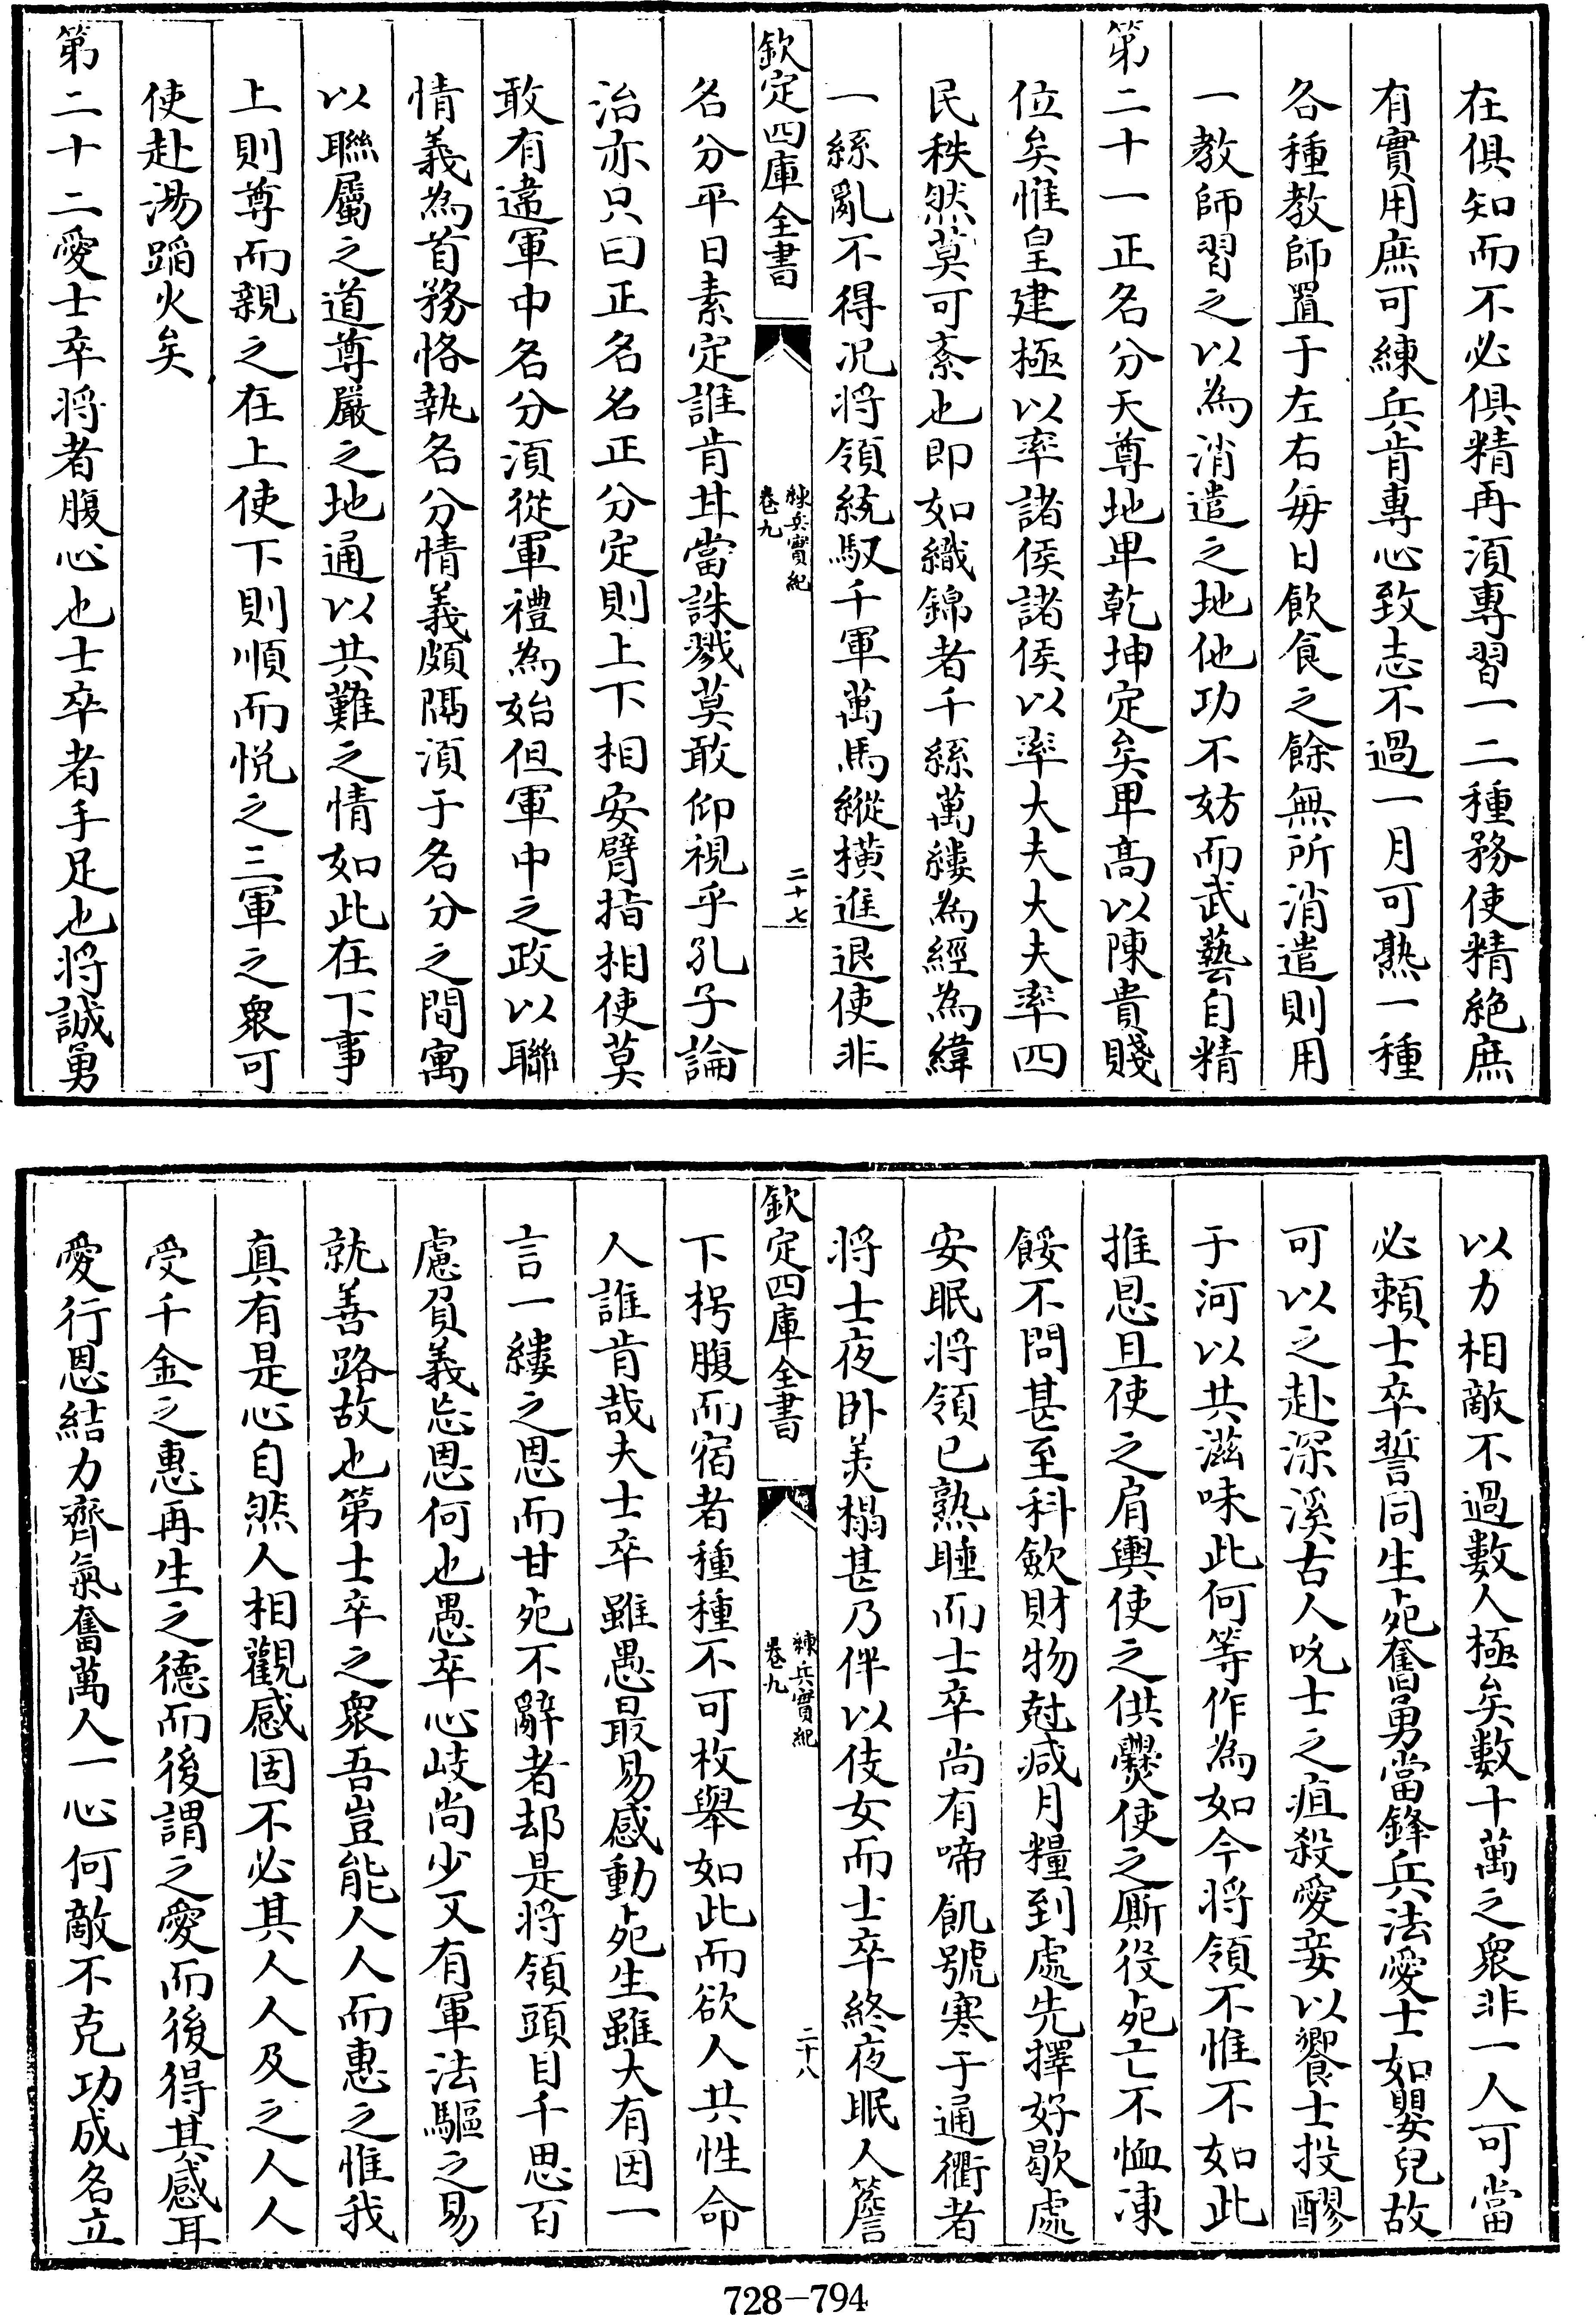 在俱知而不必俱精再須專習一二種務使精絶庶
有實用庶可練兵肯專心致志不過一月可熟一種
各種教師置于左右毎日飲食之餘無所消遣則用
一教師習之以為消遣之地他功不妨而武藝自精
第二十一正名分天尊地卑乾坤定矣卑髙以陳貴賤
位矣惟皇建極以率諸侯諸侯以率大夫大夫率四
民秩然莫可紊也即如織錦者千絲萬縷為經為緯
一絲亂不得况将領統馭千軍萬馬縱横進退使非
欽定四庫全書
練兵實紀
卷九
二十七
名分平日素定誰肯甘當誅戮莫敢仰視乎孔子論
治亦只曰正名名正分定則上下相安臂指相使莫
敢有違軍中名分須從軍禮為始但軍中之政以聯
情義為首務恪執名分情義頗隔須于名分之間寓
以聯屬之道尊嚴之地通以共難之情如此在下事
上則尊而親之在上使下則順而悦之三軍之衆可
使赴湯蹈火矣
第二十二愛士卒将者腹心也士卒者手足也将誠勇
以力相敵不過數人極矣數十萬之衆非一人可當
必頼士卒誓同生死奮勇當鋒兵法愛士如嬰兒故
可以之赴深溪古人吮士之疽殺愛妾以饗士投醪
于河以共滋味此何等作為如今将領不惟不如此
推恩且使之肩輿使之供爨使之厮役死亡不恤凍
餒不問甚至科歛財物尅减月糧到處先擇好歇處
安眠将領已熟睡而士卒尚有啼飢號寒于通衢者
将士夜卧美榻甚乃伴以伎女而士卒終夜眠人簷
欽定四庫全書
練兵實紀
卷九
二十八
下枵腹而宿者種種不可枚舉如此而欲人共性命
人誰肯哉夫士卒雖愚最易感動死生雖大有因一
言一縷之恩而甘死不辭者却是将領頭目千思百
慮負義忘恩何也愚卒心歧尚少又有軍法驅之易
就善路故也第士卒之衆吾豈能人人而惠之惟我
真有是心自然人相觀感固不必其人人及之人人
受千金之惠再生之德而後謂之愛而後得其感耳
愛行恩結力齊氣奮萬人一心何敵不克功成名立
728-794